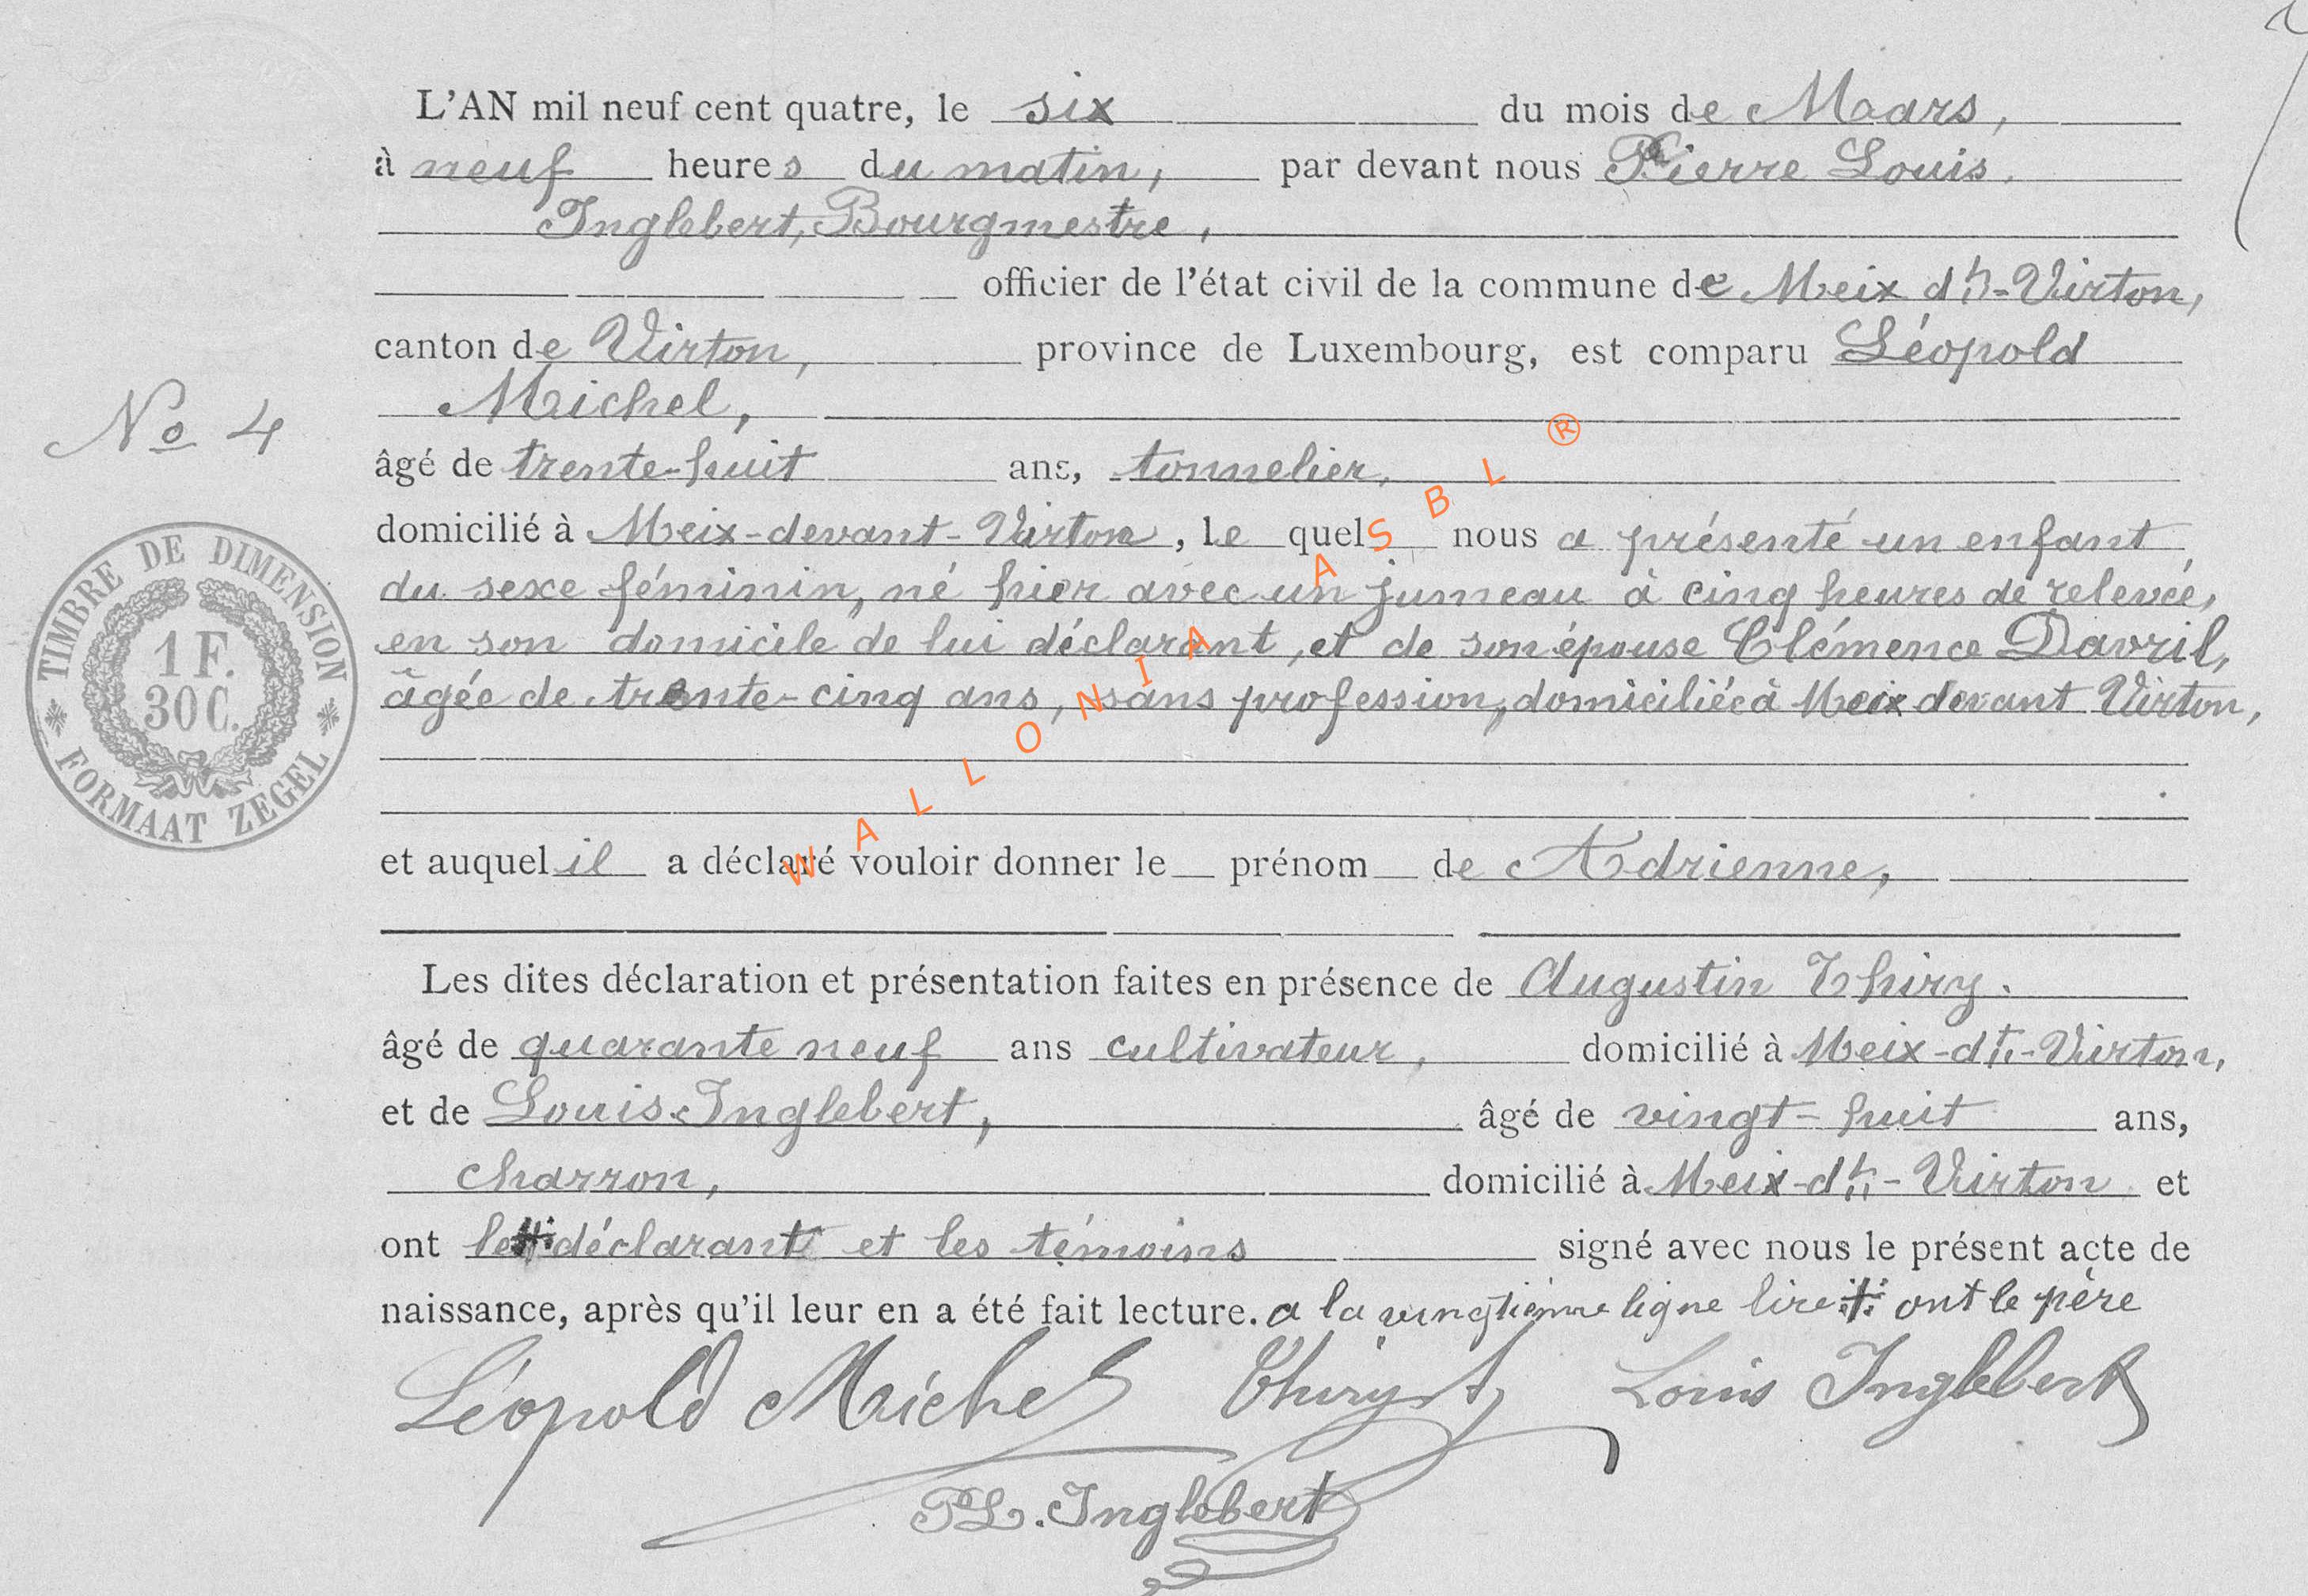 L'AN mil neuf cent quatre, le six du mois de Maars,
à neuf heures du matin, par devant nous Pierre Louis
Inglebert, Bourgmestre,
officier de l'état civil de la commune de Meix dt-Virton,
canton de Virton, province de Luxembourg, est comparu Léopold
Michel,
No 4
âgé de trente-huit ans, tonnelier,
domicilié à Meix-devant-Virton, le quel nous a présenté un enfant
du sexe féminin, né hier avec un jumeau à cinq heures de relevée,
en son domicile de lui déclarant, et de son épouse Clémence Davril,
âgée de trente-cinq ans, sans profession, domiciliée à Meix devant Virton,
TIMBRE DE DIMENSION
1 F.
30 C.
FORMAAT ZEGEL
et auquel il a déclaré vouloir donner le prénom de Adrienne,
Les dites déclaration et présentation faites en présence de Augustin Thiry.
âgé de quarante neuf ans cultivateur, domicilié à Meix-dt-Virton,
et de Louis Inglebert, âgé de vingt-huit ans,
charron, domicilié à Meix-dt-Virton et
ont le déclarant et les témoins signé avec nous le présent acte de
naissance, après qu'il leur en a été fait lecture. a la vingtième ligne lire ont le père
Léopold Michel Thiry Louis Inglebert
PL. Inglebert
WALLONIA ASBL ®